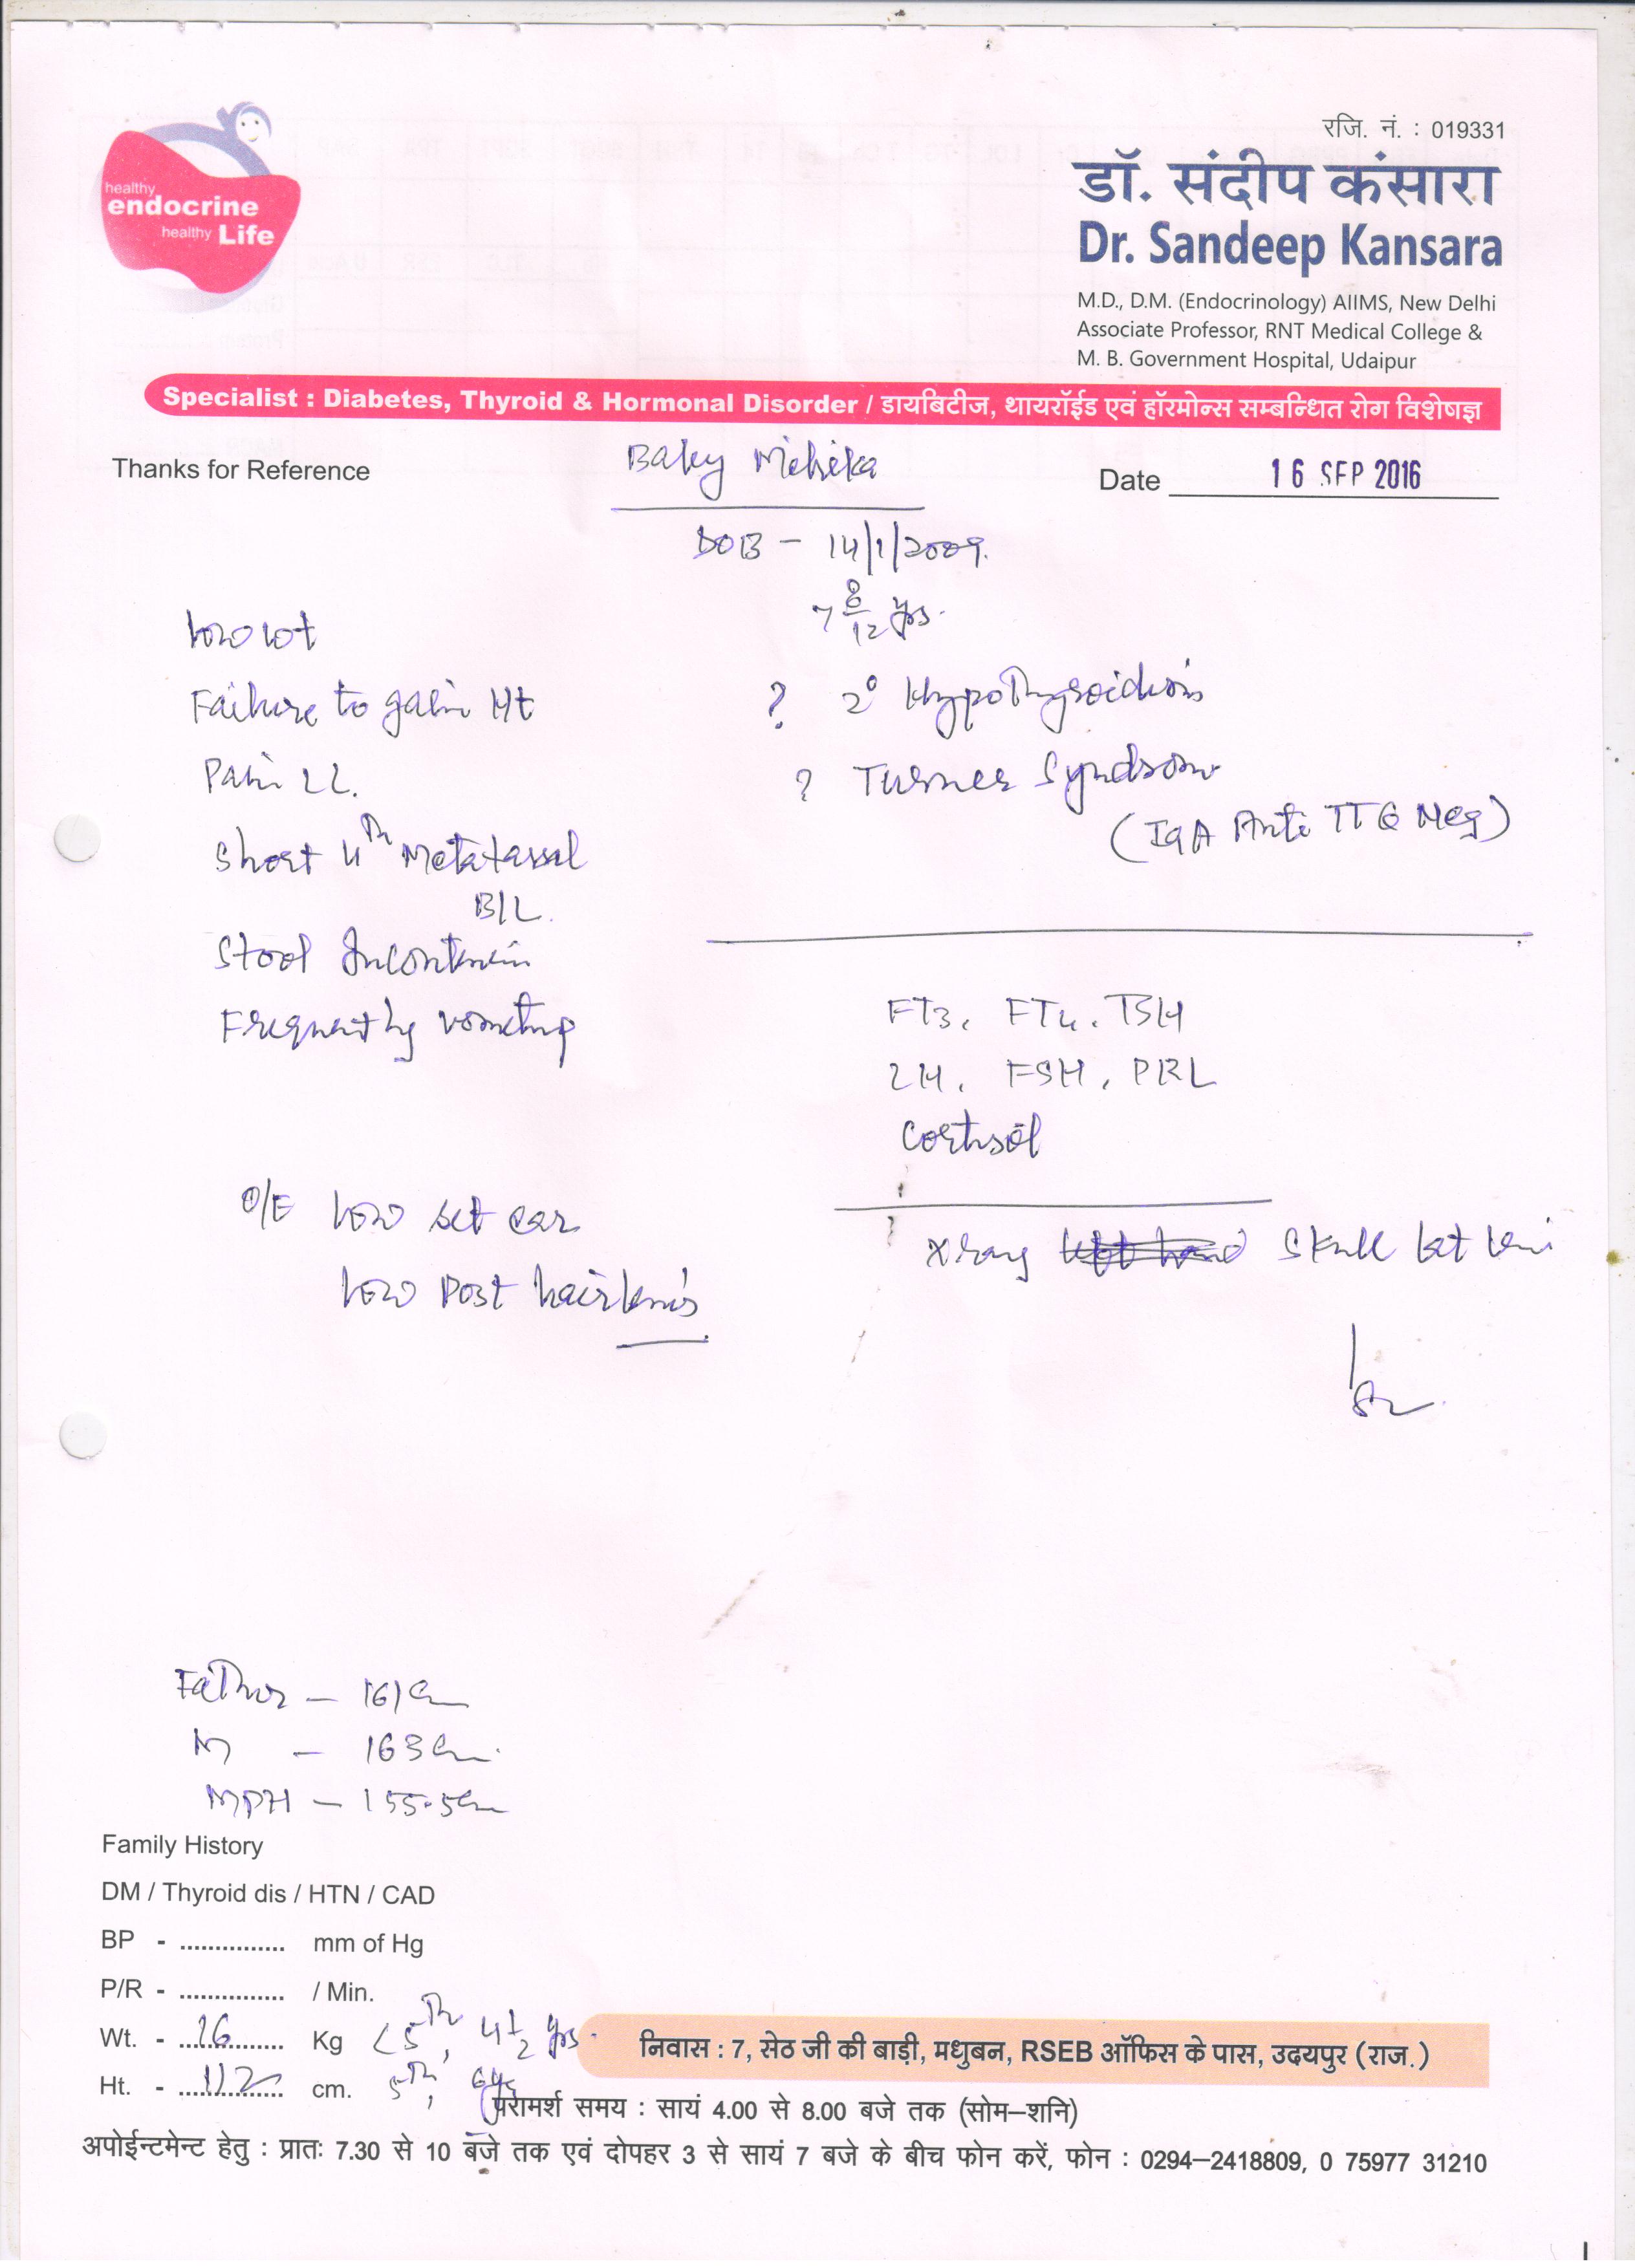 रजि. नं. : 019331
healthy
endocrine
healthy Life
डॉ. संदीप कंसारा
Dr. Sandeep Kansara
M.D., D.M. (Endocrinology) AIIMS, New Delhi
Associate Professor, RNT Medical College &
M. B. Government Hospital, Udaipur
Specialist : Diabetes, Thyroid & Hormonal Disorder / डायबिटीज, थायरॉईड एवं हॉरमोन्स सम्बन्धित रोग विशेषज्ञ
Thanks for Reference
Baby Mihika
Date 16 SEP 2016
DOB - 14/1/2009.
7 8/12 yrs.
low wt
Failure to gain Ht
? 2° Hypothyroidism
Pain LL.
? Turner Syndrome
(IgA Anti TTG Neg)
Short 4th Metatarsal
B/L.
Stool Incontinence
Frequently vomiting
FT3, FT4, TSH
LH, FSH, PRL
Cortisol
O/E low set ear
low post hairline
Xray Skull lat
Father - 161 cm
M - 163 cm.
MPH - 155.5 cm
Family History
DM / Thyroid dis / HTN / CAD
BP - ............... mm of Hg
P/R - ............... / Min.
Wt. - 16 Kg <5th, 4 1/2 yrs.
निवास : 7, सेठ जी की बाड़ी, मधुबन, RSEB ऑफिस के पास, उदयपुर (राज.)
Ht. - 112 cm. 5th, 6 yrs
परामर्श समय : सायं 4.00 से 8.00 बजे तक (सोम–शनि)
अपोईन्टमेन्ट हेतु : प्रातः 7.30 से 10 बजे तक एवं दोपहर 3 से सायं 7 बजे के बीच फोन करें, फोन : 0294–2418809, 0 75977 31210